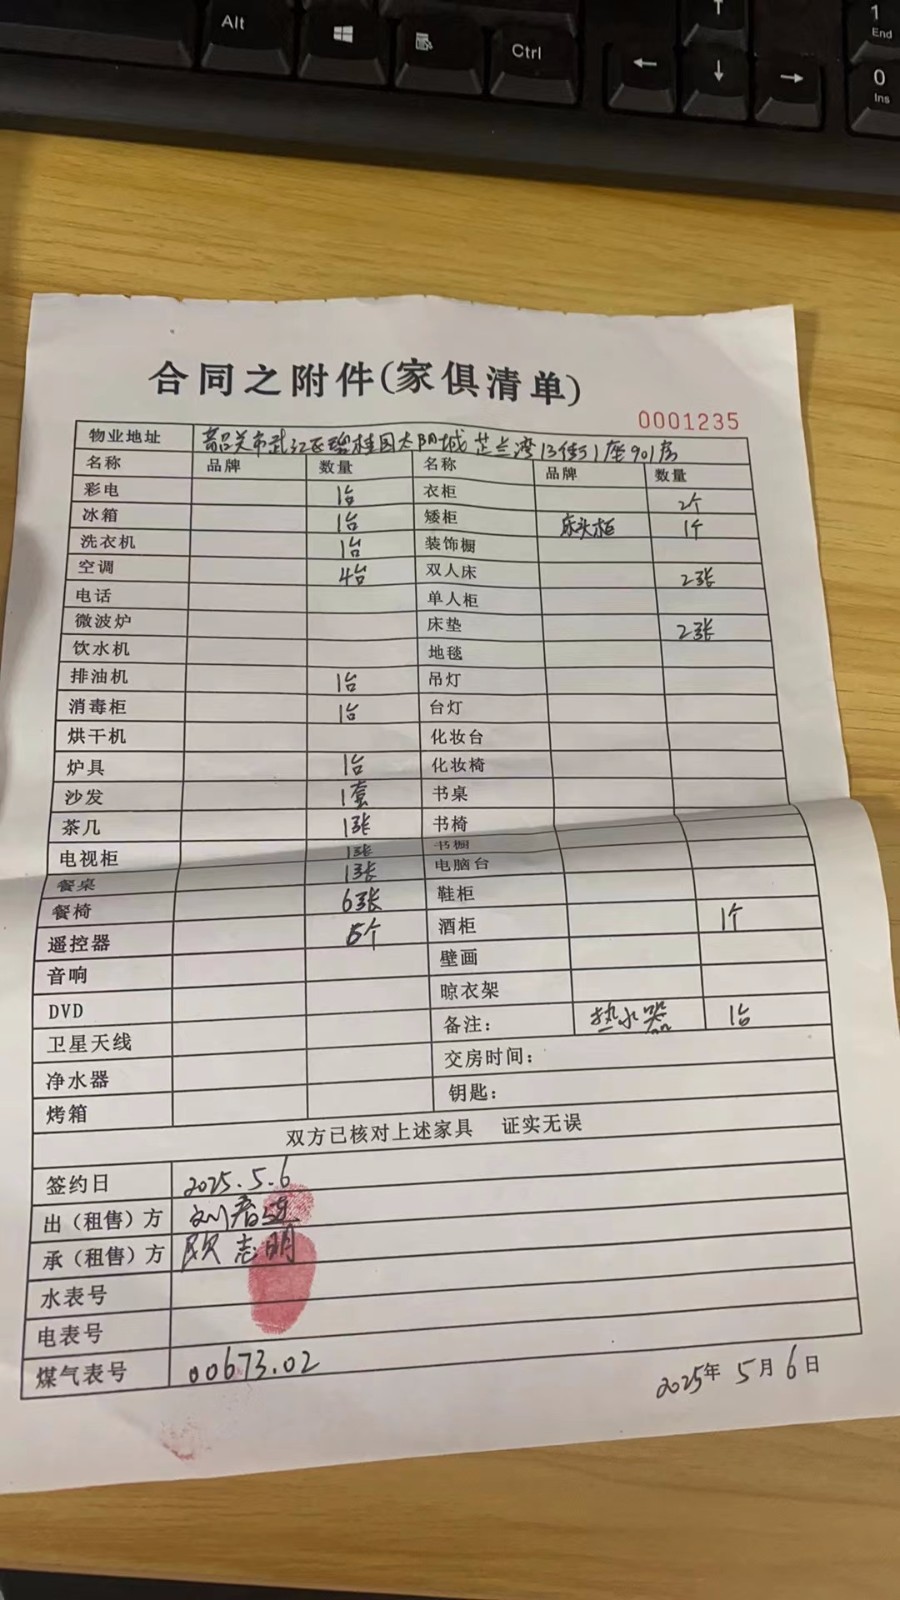 Alt
Ctrl
↑
←
↓
→
1
End
0
Ins
合同之附件(家俱清单)
0001235
物业地址 韶关市武江区碧桂园太阳城芷兰湾13街51座901房
名称 品牌 数量 名称 品牌 数量
彩电 1台 衣柜 2个
冰箱 1台 矮柜 床头柜 1个
洗衣机 1台 装饰橱
空调 4台 双人床 2张
电话 单人柜
微波炉 床垫 2张
饮水机 地毯
排油机 1台 吊灯
消毒柜 1台 台灯
烘干机 化妆台
炉具 1台 化妆椅
沙发 1套 书桌
茶几 1张 书椅
电视柜 1张 书橱
餐桌 1张 电脑台
餐椅 6张 鞋柜
遥控器 5个 酒柜 1个
音响 壁画
DVD 晾衣架
卫星天线 备注: 热水器 1台
净水器 交房时间:
烤箱 钥匙:
双方已核对上述家具 证实无误
签约日 2025.5.6
出（租售）方 刘春
承（租售）方 志明
水表号
电表号
煤气表号 00673.02
2025年5月6日